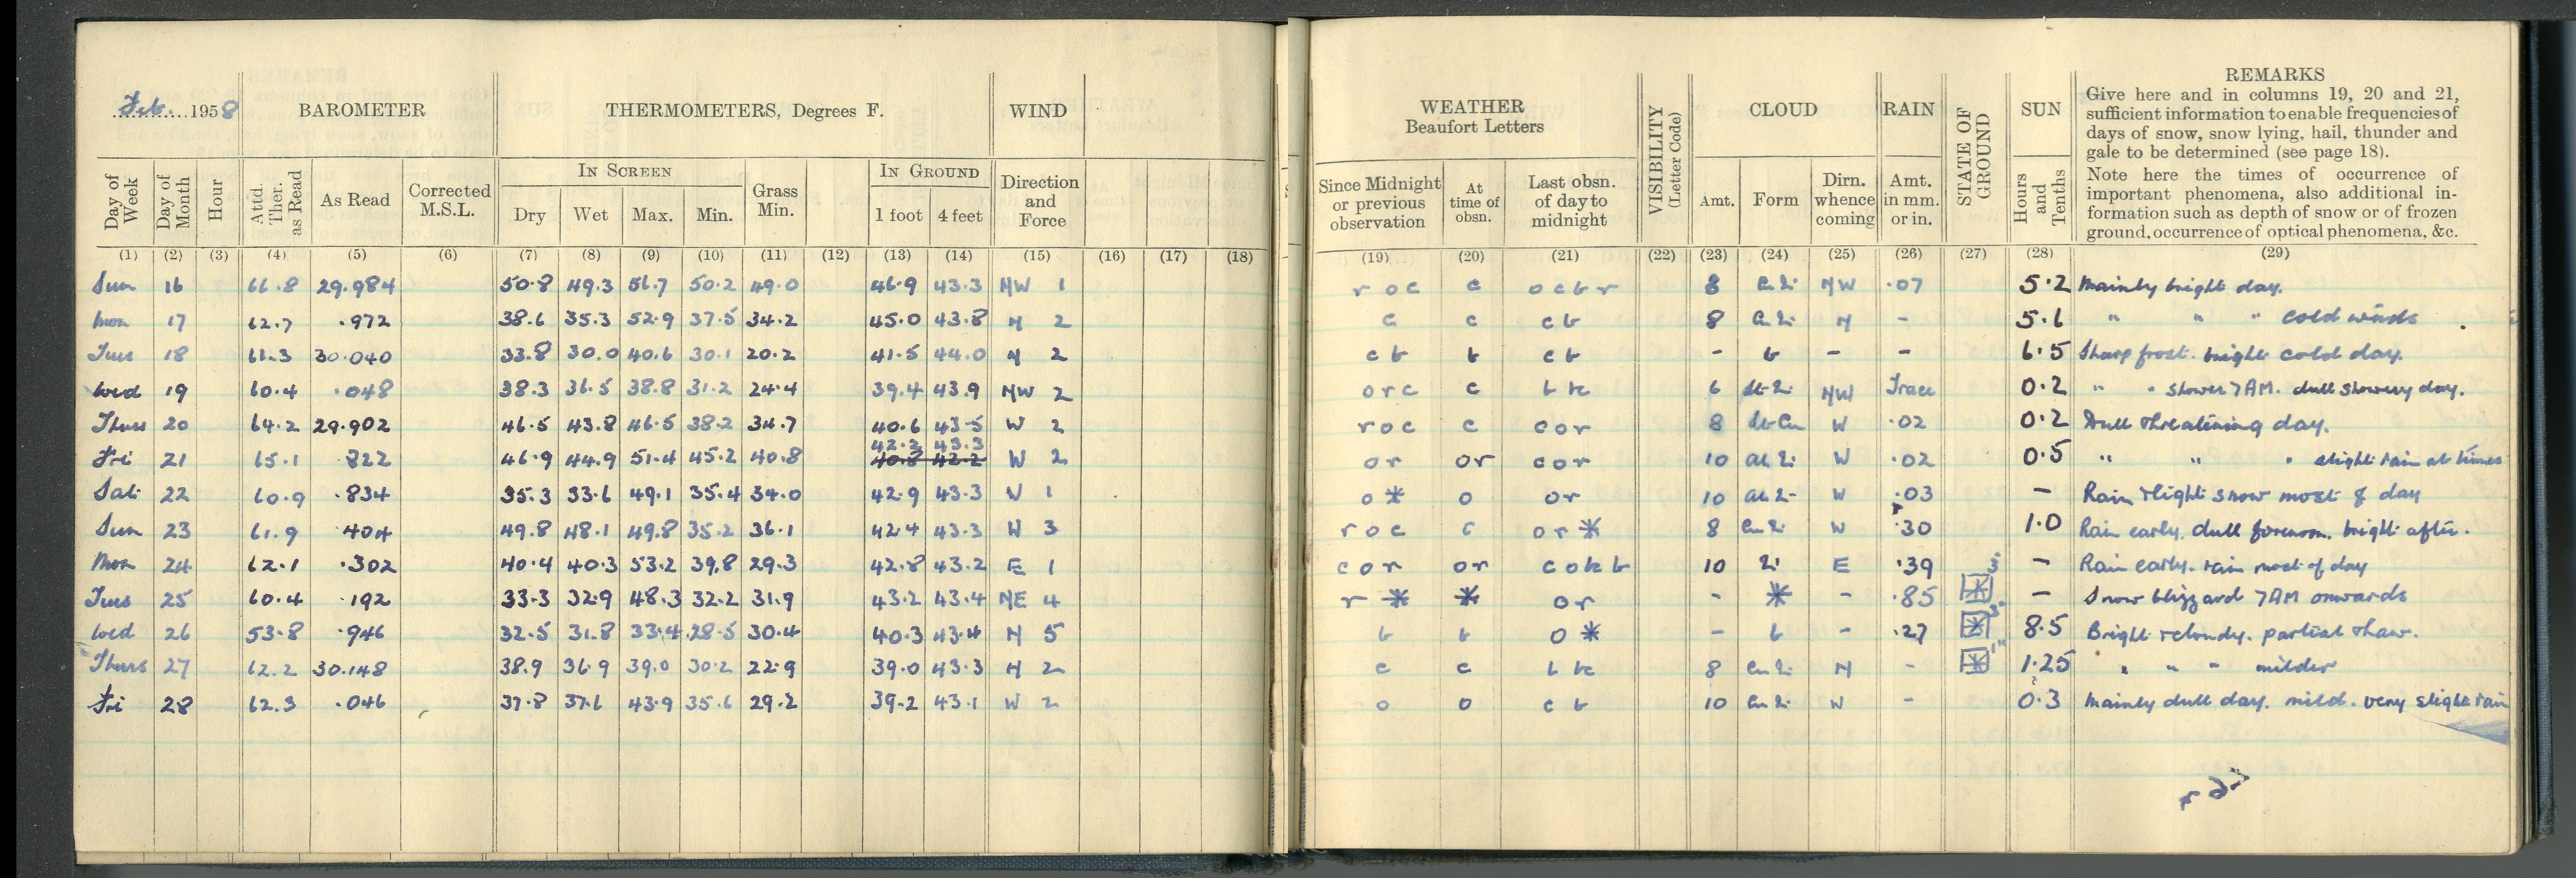 Feb. 1958 BAROMETER THERMOMETERS, Degrees F. WIND
Day of Week Day of Month Hour Attd. Ther. as Read As Read Corrected M.S.L. IN SCREEN Dry Wet Max. Min. Grass Min. IN GROUND 1 foot 4 feet Direction and Force
(1) (2) (3) (4) (5) (6) (7) (8) (9) (10) (11) (12) (13) (14) (15) (16) (17) (18)
Sun 16 66.8 29.984 50.8 49.3 56.7 50.2 49.0 46.9 43.3 NW 1
Mon 17 62.7 .972 38.6 35.3 52.9 37.5 34.2 45.0 43.8 N 2
Tues 18 61.3 30.040 33.8 30.0 40.6 30.1 20.2 41.5 44.0 N 2
Wed 19 60.4 .048 38.3 36.5 38.8 31.2 24.4 39.4 43.9 NW 2
Thurs 20 64.2 29.902 46.5 43.8 46.5 38.2 34.7 40.6 43.5 W 2
42.2 43.3
Fri 21 65.1 .822 46.9 44.9 51.4 45.2 40.8 40.8 42.2 W 2
Sat 22 60.9 .834 35.3 33.6 49.1 35.4 34.0 42.9 43.3 W 1
Sun 23 61.9 .404 49.8 48.1 49.8 35.2 36.1 42.4 43.3 W 3
Mon 24 62.1 .302 40.4 40.3 53.2 39.8 29.3 42.8 43.2 E 1
Tues 25 60.4 .192 33.3 32.9 48.3 32.2 31.9 43.2 43.4 NE 4
Wed 26 53.8 .946 32.5 31.8 33.4 28.5 30.4 40.3 43.4 N 5
Thurs 27 62.2 30.148 38.9 36.9 39.0 30.2 22.9 39.0 43.3 N 2
Fri 28 62.3 .046 37.8 37.6 43.9 35.6 29.2 39.2 43.1 W 2
WEATHER Beaufort Letters VISIBILITY (Letter Code) CLOUD RAIN STATE OF GROUND SUN REMARKS
Give here and in columns 19, 20 and 21,
sufficient information to enable frequencies of
days of snow, snow lying, hail, thunder and
gale to be determined (see page 18).
Note here the times of occurrence of
important phenomena, also additional in-
formation such as depth of snow or of frozen
ground, occurrence of optical phenomena, &c.
Since Midnight or previous observation At time of obsn. Last obsn. of day to midnight Amt. Form Dirn. whence coming Amt. in mm. or in. Hours and Tenths
(19) (20) (21) (22) (23) (24) (25) (26) (27) (28) (29)
r o c c o c b r 8 NW .07 5.2 Mainly bright day.
c c c b 8 N - 5.6 " " " cold winds
c b b c b - b - - 6.5 Sharp frost. bright cold day.
o r c c b 6 NW Trace 0.2 " " shower 7AM. dull showery day.
r o c c c o r 8 St-Cu W .02 0.2 Dull threatening day.
o r o r c o r 10 W .02 0.5 " " " slight rain at times
o * o o r 10 W .03 - Rain + light snow most of day
r o c c o r * 8 W .30 1.0 Rain early. dull forenoon. bright after.
c o r o r 10 E .39 - Rain early. rain most of day
r * * o r - * - .85 * 3" - Snow blizzard 7AM onwards
b b o * - b - .27 * 3" 8.5 Bright + cloudy. partial thaw.
c c 8 N - * 1" 1.25 " " " milder
o o c b 10 W - 0.3 Mainly dull day. mild. very slight rain